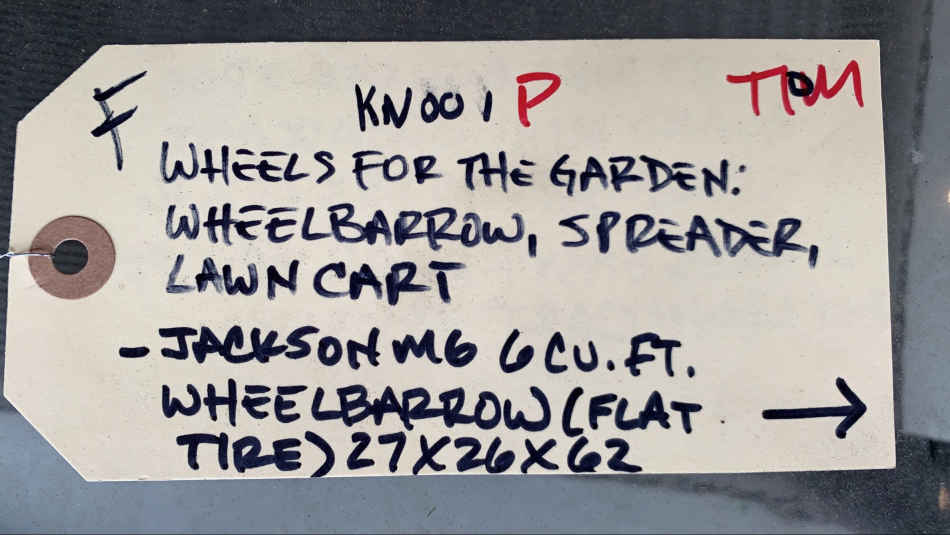 F KN001 P TOM
WHEELS FOR THE GARDEN:
WHEELBARROW, SPREADER,
LAWN CART
- JACKSON M6 6 CU. FT.
WHEELBARROW (FLAT →
TIRE) 27X26X62